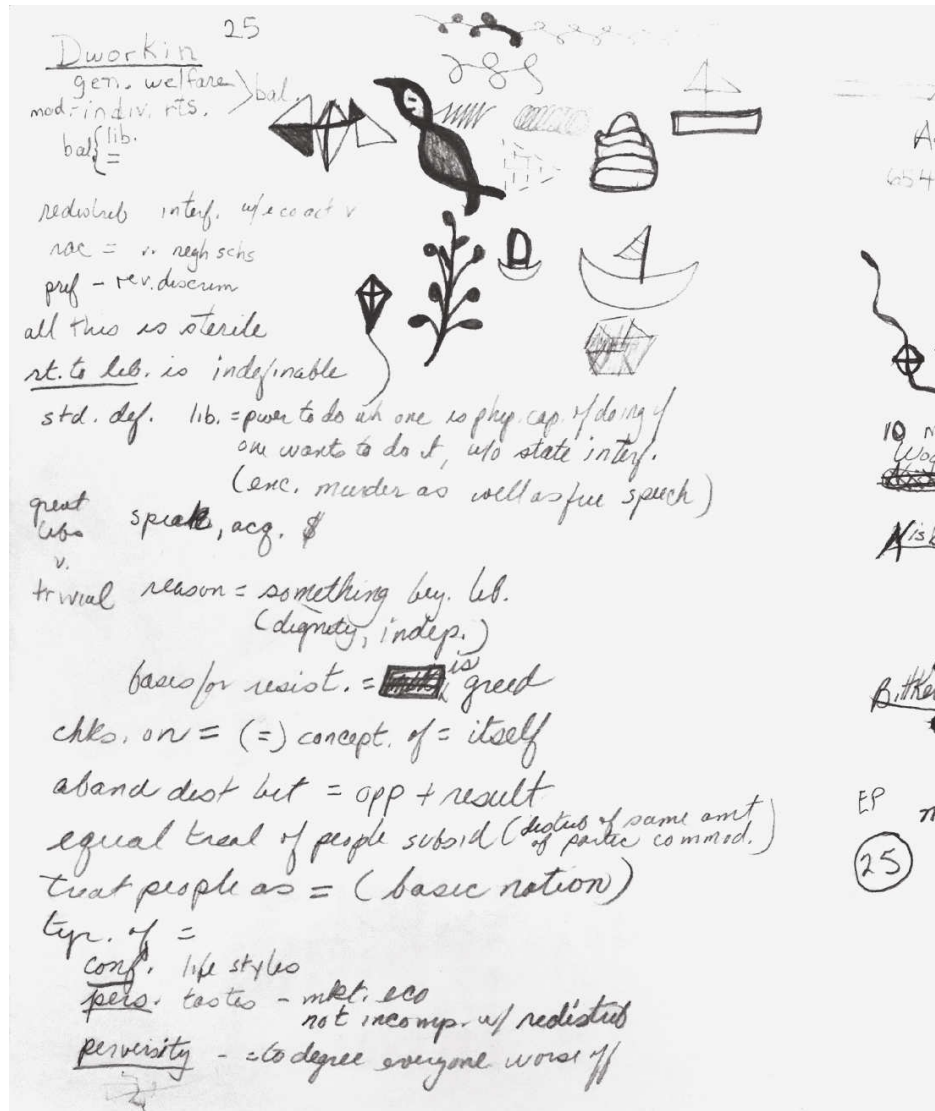 25
Dworkin
gen. welfare
mod = indiv. rts. > bal.
bal { lib.
=
redistrib interf. w/ eco act v
rac = v. negh schs
pref - rev. discrim
all this is sterile
rt. to lib. is indefinable
std. def. lib. = power to do wh one is phys. cap. of doing if
one wants to do it, w/o state interf.
(enc. murder as well as free speech)
great
libs speak, acq. $
v.
trivial reason = something bey. lib.
(dignity, indep.)
bases for resist. = is greed
chks. on = (=) concept. of = itself
aband dist bet = opp + result
equal treat of people subsid (distrib of same amt
of partic commod.)
treat people as = (basic notion)
typ. of =
conf. life styles
pers. tastes - mkt. eco
not incomp. w/ redistrib
perversity - = to degree everyone worse off
A
654
10
EP
25